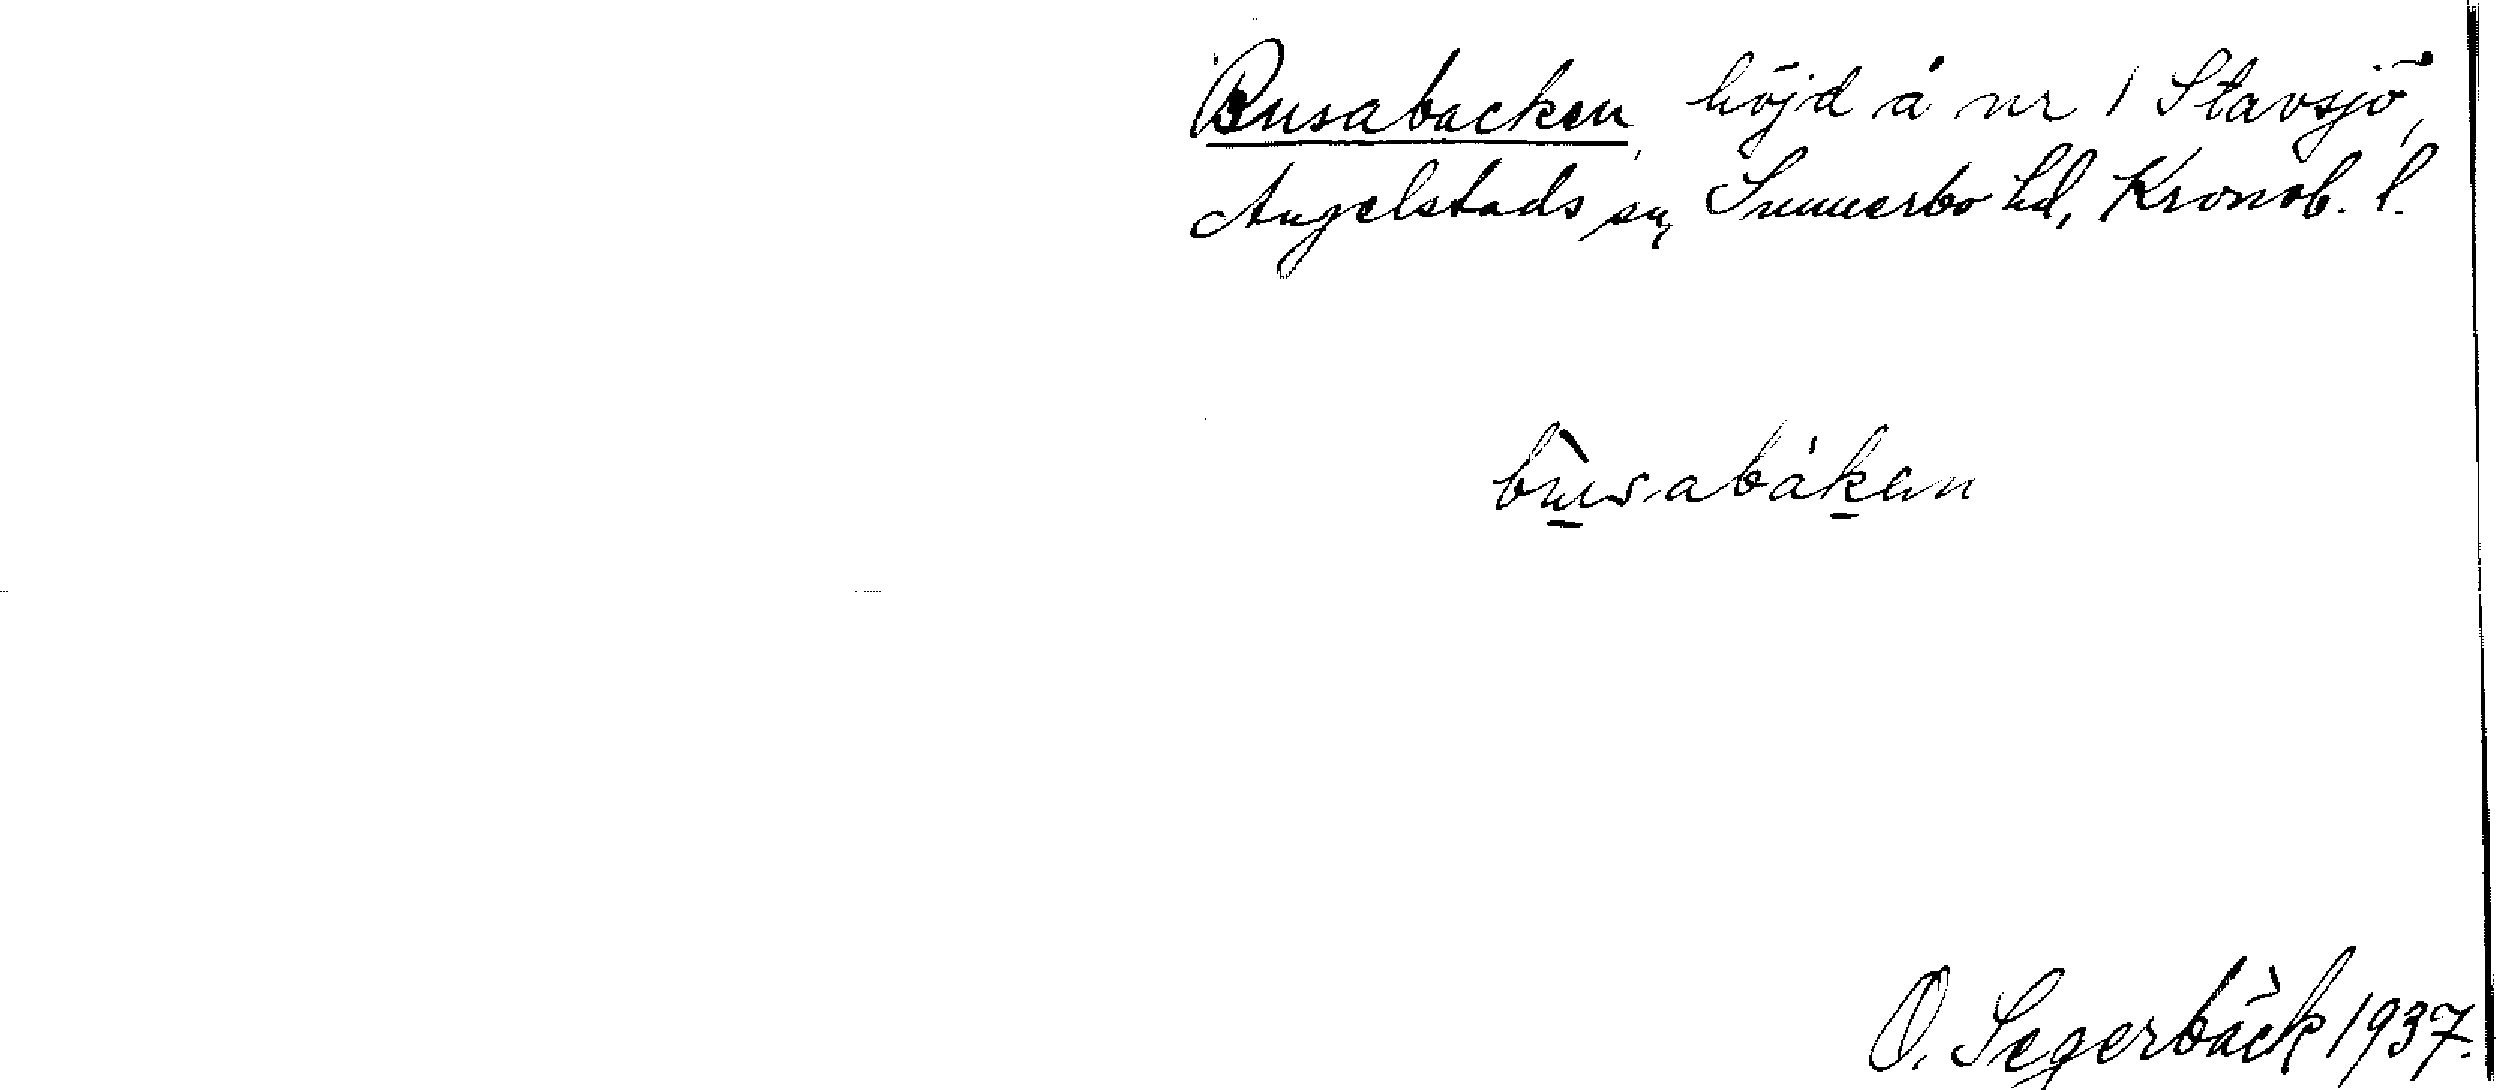 Busabacken, höjd å nr 1 Stavsjö,
Angelstads sn, Sunnerbo hd, Kronob. l.
bùsabákan
O. Segerbäck 1937.